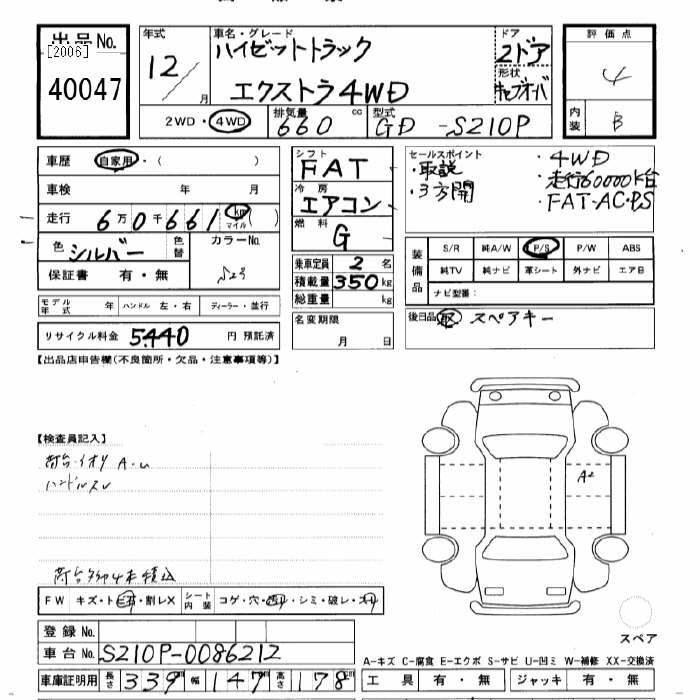 出品No.
[2006]
40047
年式
12/月
車名・グレード
ハイゼットトラック
エクストラ4WD
ドア
2ドア
形状
キャブオーバ
評価点
4
内装
B
2WD・4WD
排気量
660 cc
型式
GD-S210P
車歴 自家用・( )
車検 年 月
走行 6万0千661 km マイル ( )
色 シルバー 色替
カラーNo.
S23
保証書 有・無
モデル年式 年 ハンドル 左・右 ディーラー・並行
リサイクル料金 5.440 円 預託済
シフト
FAT
冷房
エアコン
燃料
G
乗車定員 2 名
積載量 350 kg
総重量 kg
名変期限
月 日
セールスポイント
・取説
・3方開
・4WD
・走行60000K台
・FAT-AC・PS
装備品
S/R 純A/W P/S P/W ABS
純TV 純ナビ 革シート 外ナビ エアB
ナビ型番:
後日品 取 スペアキー
【出品店申告欄(不良箇所・欠品・注意事項等)】
【検査員記入】
荷台・イオリ A-U
ハンドルスレ
A2
FW キズ・ト・割レX
シート内装 コゲ・穴・・シミ・破レ・スレ
スペア
登録No.
車台No. S210P-0086212
車庫証明用 長さ 339 cm 幅 147 cm 高さ 178 cm
A-キズ C-腐食 E-エクボ S-サビ U-凹ミ W-補修 XX-交換済
工具 有・無 ジャッキ 有・無